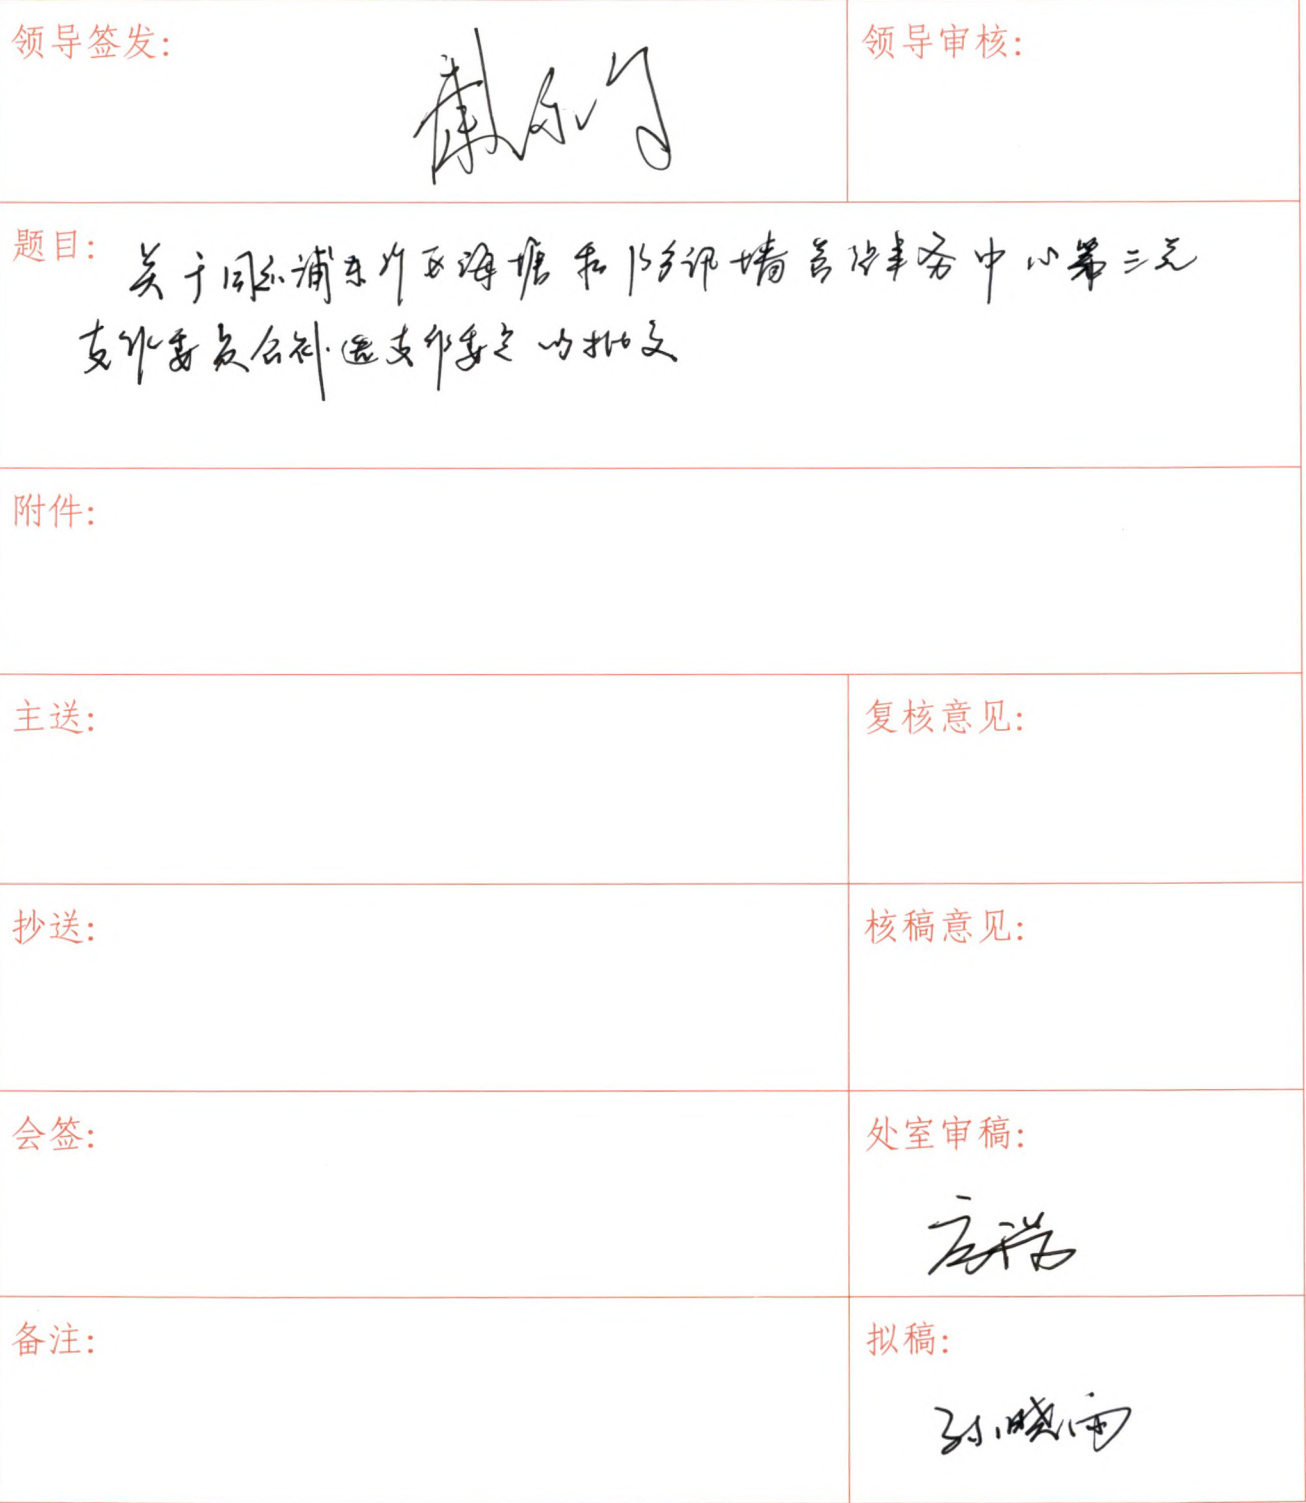 领导签发:
领导审核:
题目: 关于同意浦东新区海塘和防汛墙管理事务中心第三党
支部委员会补选支部委员的批文
附件:
主送:
复核意见:
抄送:
核稿意见:
会签:
处室审稿:
备注:
拟稿:
孙晓雨